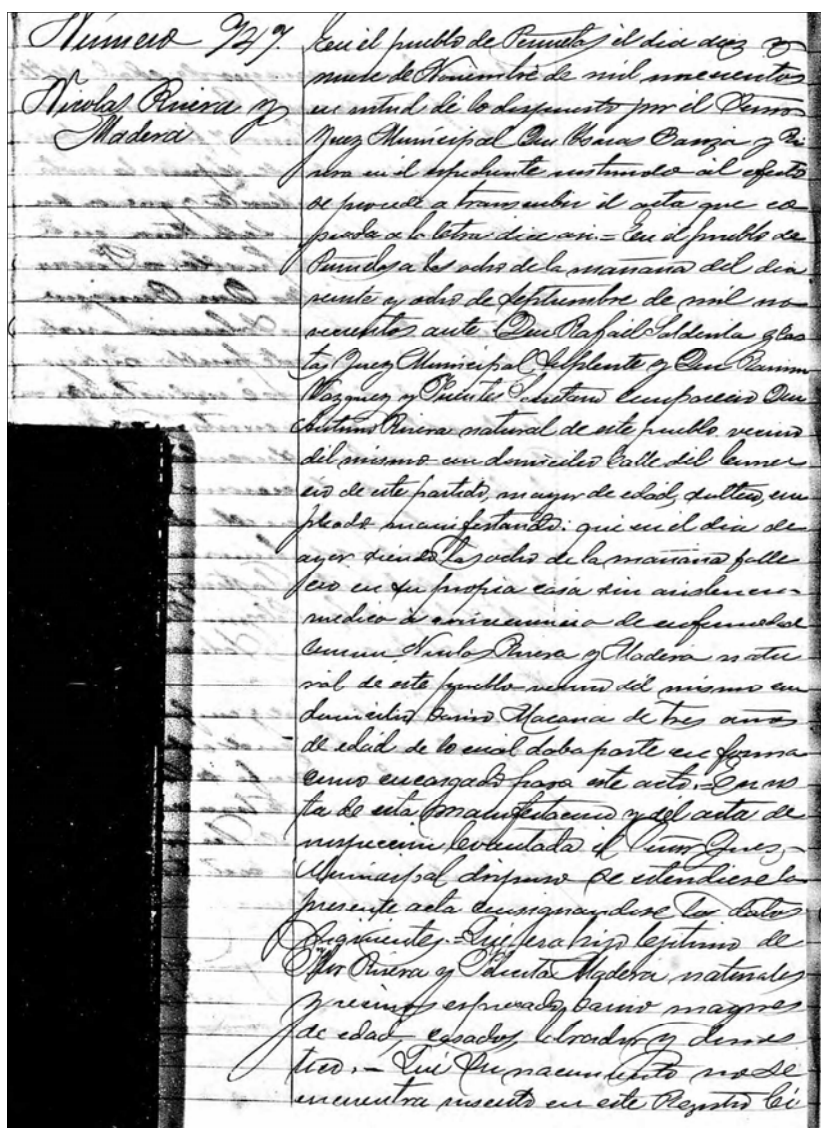 Número 747.
Nicolas Rivera y
Madera
En el pueblo de Peñuelas el dia diez y
nueve de Noviembre de mil novecientos
en virtud de lo dispuesto por el Señor
Juez Municipal Don
en el espediente instruido al efecto
se procede a transcribir el acta que co
piada a la letra dice asi.= En el pueblo de
Peñuelas a las ocho de la mañana del dia
veinte y ocho de Septiembre de mil no
vecientos ante Don Rafael
Juez Municipal Suplente y Don Ramon
Vazquez y Puentes Secretario comparecio Don
Antonio Rivera natural de este pueblo vecino
del mismo con domicilio Calle del Comer
cio de este partido, mayor de edad, soltero, em
pleado manifestando: que en el dia de
ayer siendo las ocho de la mañana falle
cio en su propia casa sin asistencia
medica a consecuencia de enfermedad
comun Nicolas Rivera y Madera natu
ral de este pueblo vecino del mismo con
domicilio barrio Macana de tres años
de edad de lo cual daba parte en forma
como encargado para este acto.= En vis
ta de esta manifestacion y del acta de
inspeccion levantada el Señor Juez
Municipal dispuso se estendiese la
presente acta consignandose los datos
siguientes.= Que era hijo lejitimo de
Rivera y Madera naturales
y vecinos espresado barrio mayores
de edad, casados, labrador y domes
tico.= Que su nacimiento no se
encuentra inscrito en este Registro Ci